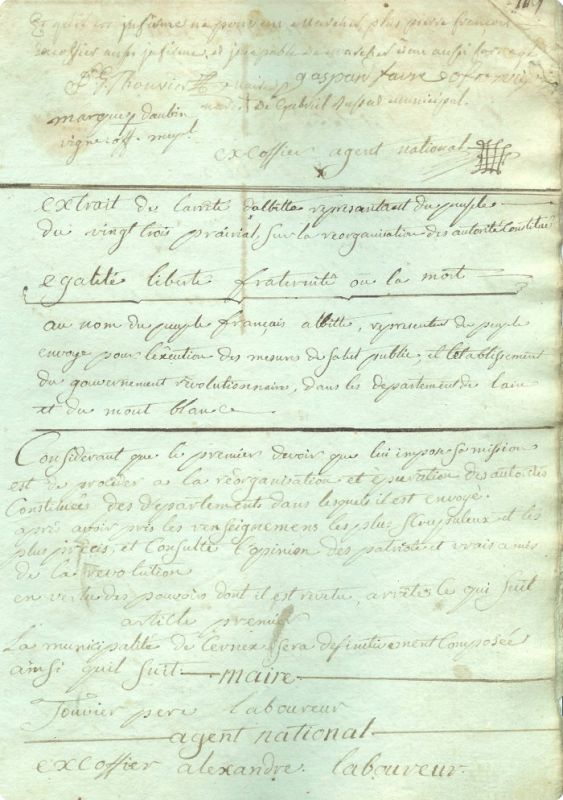 et qu'il est infirme ne pouvent marcher plus pierre françois
excoffier aussi infirme et incapable de marcher
J. F. Thouvier maire gaspar faure officier
marque d de Gabriel municipal
marque daubin
vigne off. mupl.
excoffier agent national
extrait de larreté dalbitte representant du peuple
du vingt trois prairial sur la reorganisation des autorité Constitué
egalité liberte fraternité ou la mort
au nom du peuple français albitte, representent du peuple
envoye pour lexéution des mesures de salut public, et letablissement
du gouvernement révolutionnaire, dans les departement de lain
et du mont blanc
Considerant que le premier devoir que lui impose sa mission
est de proceder a la réorganisation et épuration des autorites
Constituées des departements dans lesquels il est envoyé.
apres avoir pris les renseignemens les plus scrupuleux et les
plus précis, et Consulté l'opinion des patriote et vrais amis
de la revolution
en vertu des pouvoirs dont il est revetu, arrête ce qui suit
article premier
La municipalité de Cernex sera definitivement Composée
ainsi quil suit maire
Touvier pere laboureur
agent national
excoffier alexandre laboureur.